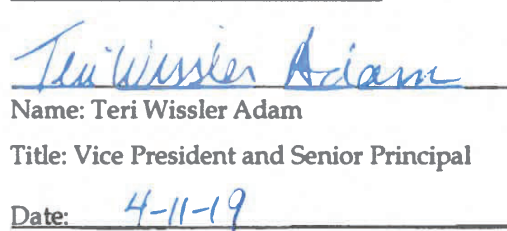 Teri Wissler Adam
Name: Teri Wissler Adam
Title: Vice President and Senior Principal
Date: 4-11-19